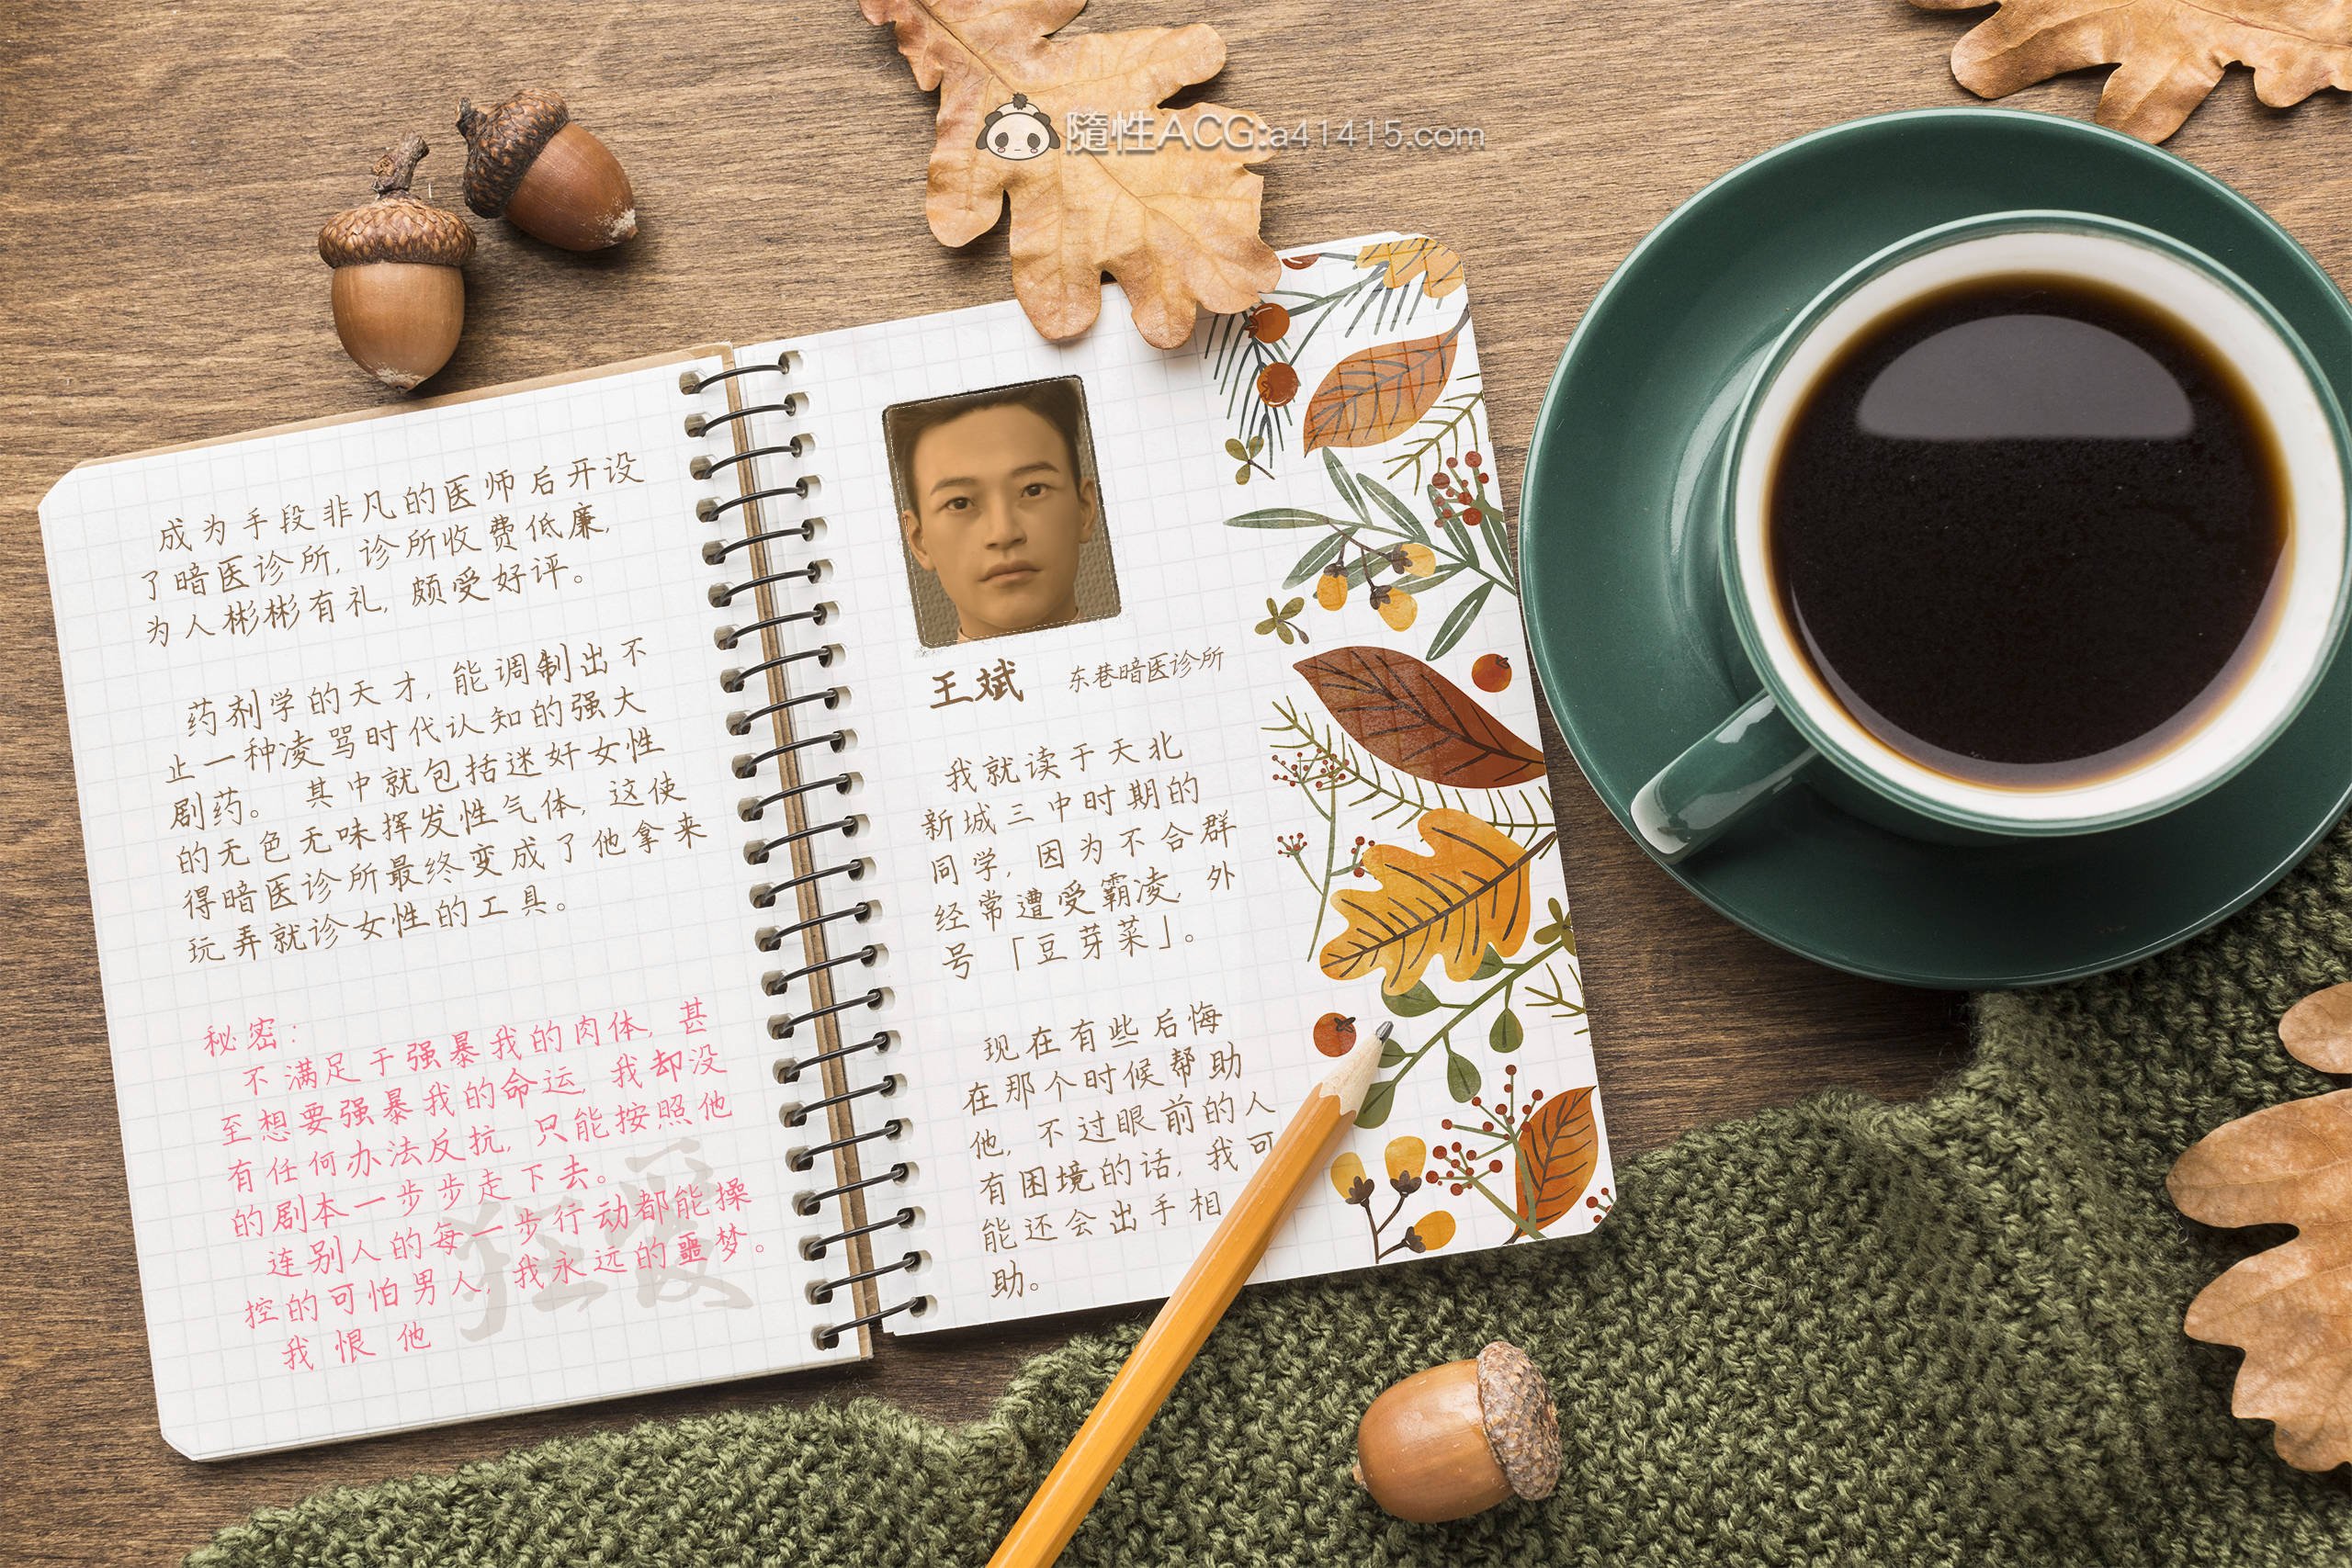 隨性ACG:a41415.com
成为手段非凡的医师后开设
了暗医诊所, 诊所收费低廉,
为人彬彬有礼, 颇受好评。
药剂学的天才, 能调制出不
止一种凌骂时代认知的强大
剧药。 其中就包括迷奸女性
的无色无味挥发性气体, 这使
得暗医诊所最终变成了他拿来
玩弄就诊女性的工具。
秘密:
不满足于强暴我的肉体, 甚
至想要强暴我的命运, 我却没
有任何办法反抗, 只能按照他
的剧本一步步走下去。
连别人的每一步行动都能操
控的可怕男人, 我永远的噩梦。
我恨他
狂爱
王斌 东巷暗医诊所
我就读于天北
新城三中时期的
同学, 因为不合群
经常遭受霸凌, 外
号「豆芽菜」。
现在有些后悔
在那个时候帮助
他, 不过眼前的人
有困境的话, 我可
能还会出手相
助。